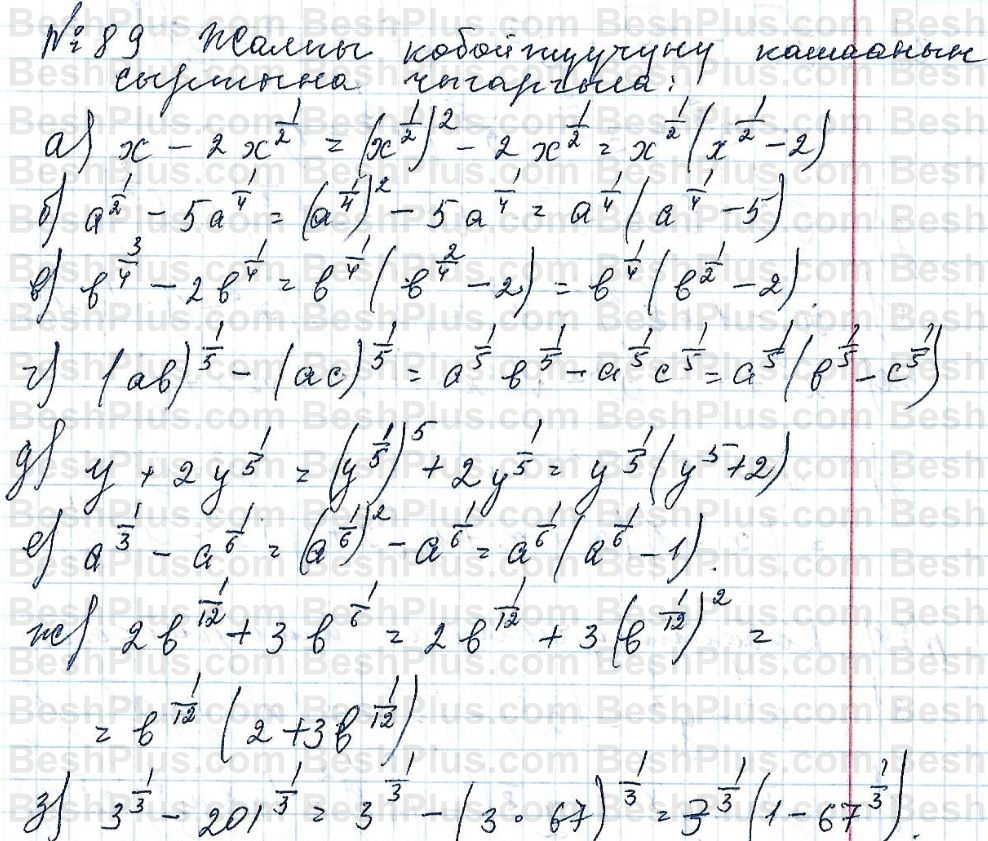 № 89 Жалпы көбөйтүүчүнү кашаанын
сыртына чыгаргыла:
а) x - 2x^{1/2} = (x^{1/2})^2 - 2x^{1/2} = x^{1/2}(x^{1/2} - 2)
б) a^{1/2} - 5a^{1/4} = (a^{1/4})^2 - 5a^{1/4} = a^{1/4}(a^{1/4} - 5)
в) b^{3/4} - 2b^{1/4} = b^{1/4}(b^{2/4} - 2) = b^{1/4}(b^{1/2} - 2).
г) (ab)^{1/5} - (ac)^{1/5} = a^{1/5} b^{1/5} - a^{1/5} c^{1/5} = a^{1/5}(b^{1/5} - c^{1/5})
д) y + 2y^{1/5} = (y^{1/5})^5 + 2y^{1/5} = y^{1/5}(y^5 + 2)
е) a^{1/3} - a^{1/6} = (a^{1/6})^2 - a^{1/6} = a^{1/6}(a^{1/6} - 1).
ж) 2b^{1/12} + 3b^{1/6} = 2b^{1/12} + 3(b^{1/12})^2 =
= b^{1/12}(2 + 3b^{1/12})
з) 3^{1/3} - 201^{1/3} = 3^{1/3} - (3 · 67)^{1/3} = 3^{1/3}(1 - 67^{1/3}).